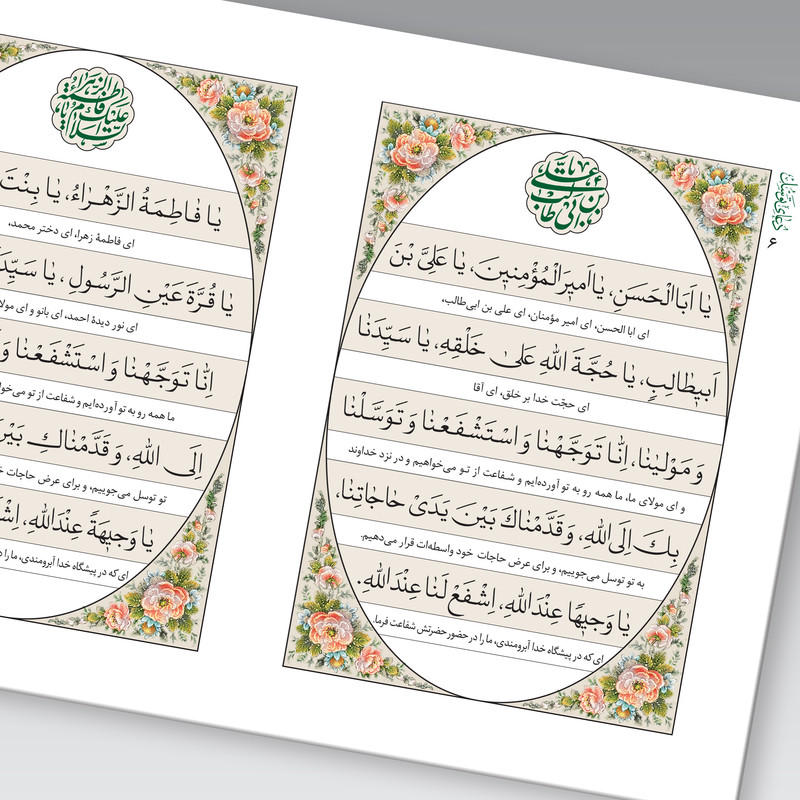 دعای توسّل
۶
یا علی بن ابی طالب
یا اَبَاالْحَسَنِ، یا اَمیرَالْمُؤْمِنینَ، یا عَلِیَّ بْنَ
ای ابا الحسن، ای امیر مؤمنان، ای علی بن ابی‌طالب،
اَبیطالِبٍ، یا حُجَّةَ اللهِ عَلی خَلْقِهِ، یا سَیِّدَنا
ای حجّت خدا بر خلق، ای آقا
وَ مَوْلینا، اِنّا تَوَجَّهْنا وَ اسْتَشْفَعْنا وَ تَوَسَّلْنا
و ای مولای ما، ما همه رو به تو آورده‌ایم و شفاعت از تـو می‌خواهیم و در نزد خداوند
بِكَ اِلَی اللهِ، وَ قَدَّمْناكَ بَیْنَ یَدَیْ حاجاتِنا،
به تو توسل می‌جوییم، و برای عرض حاجات خود واسطه‌ات قرار می‌دهیم.
یا وَجیهًا عِنْدَاللهِ، اِشْفَعْ لَنا عِنْدَاللهِ.
ای که در پیشگاه خدا آبرومندی، ما را در حضور حضرتش شفاعت فرما.
السلام علیک یا فاطمة الزهراء
یا فاطِمَةُ الزَّهْراءُ، یا بِنْتَ
ای فاطمهٔ زهرا، ای دختر محمد،
یا قُرَّةَ عَیْنِ الرَّسُولِ، یا
ای نور دیدهٔ احمد، ای بانو و ای
اِنّا تَوَجَّهْنا وَ اسْتَشْفَعْنا وَ
ما همه رو به تو آورده‌ایم و شفاعت از تو
اِلَی اللهِ، وَ قَدَّمْناكِ
تو توسل می‌جوییم، و برای عرض حاجات
یا وَجیهَةً عِنْدَاللهِ،
ای که در پیشگاه خدا آبرومندی، ما را